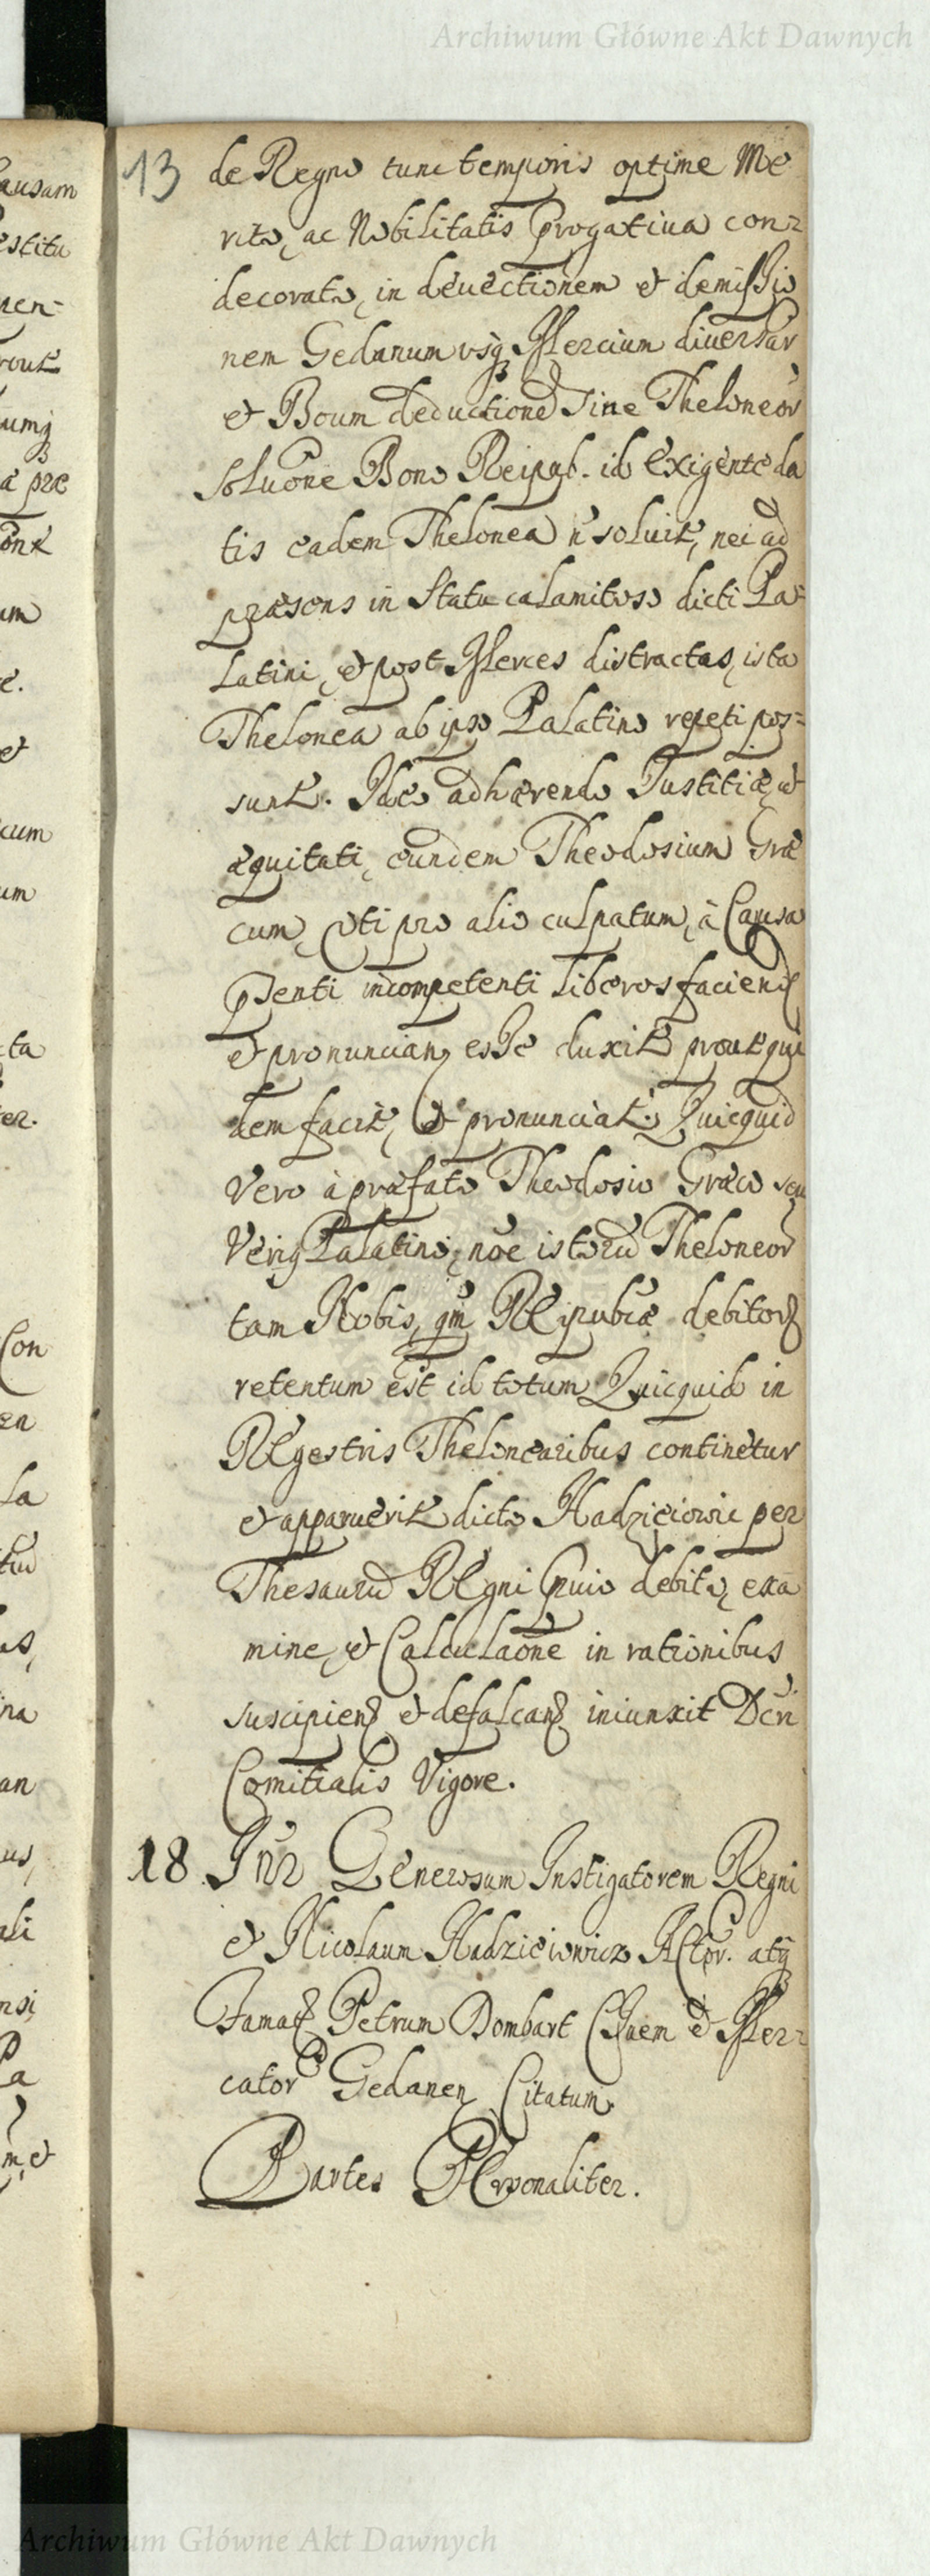 Archiwum Główne Akt Dawnych
13
de Regno tunc temporis optime Me
rito, ac Nobilitatis Progatiua con=
decorato, in deuectionem et demissio
nem Gedanum usq Mercium diuersar
et Boum deductione Sine Theloneor
Soluone Bono Reipub. id exigente da
tis eadem Thelonea n soluit, nei ad
præsens in Statu calamitoso dicti Pa=
Latini, et post Merces distractas, ista
Thelonea ab ipso Palatino repeti pos=
sunt. Ideo adhærendo Justitiæ, et
æquitati, eundem Theodosium Græ
cum, uti pro alio culpatum, à Causa
psenti incompetenti liberos faciend
et pronuncian, esse duxit prout qui
dem facit, et pronunciat. Quicquid
Vero à præfato Theodosio Græco seu
Veriq Palatino, noe istorū Theloneor
tam Nobis, qm Reipubcæ debitor
retentum est id totum Quicquid in
Regestris Thelonearibus continetur
et apparuerit dicto Hadzieiowic per
Thesaurū Regni Puio debito, exa
mine, et Calculaone in rationibus
suscipien et defalcan iniunxit Dcri
Comitialis Vigore.
18. Inr Generosum Instigatorem Regni
et Nicolaum Hadzieiowicz Actor. atq
Famat Petrum Dombart Ciuem et Mer=
cator Gedanen Citatum.
Partes Personaliter.
ausam
estitu
nen=
rout
umq
a præ
ont
um
e.
et
cum
um
ta
er.
Con
en
La
tiu
as,
ina
an
us,
ali
nsi
La
m, et
Archiwum Główne Akt Dawnych